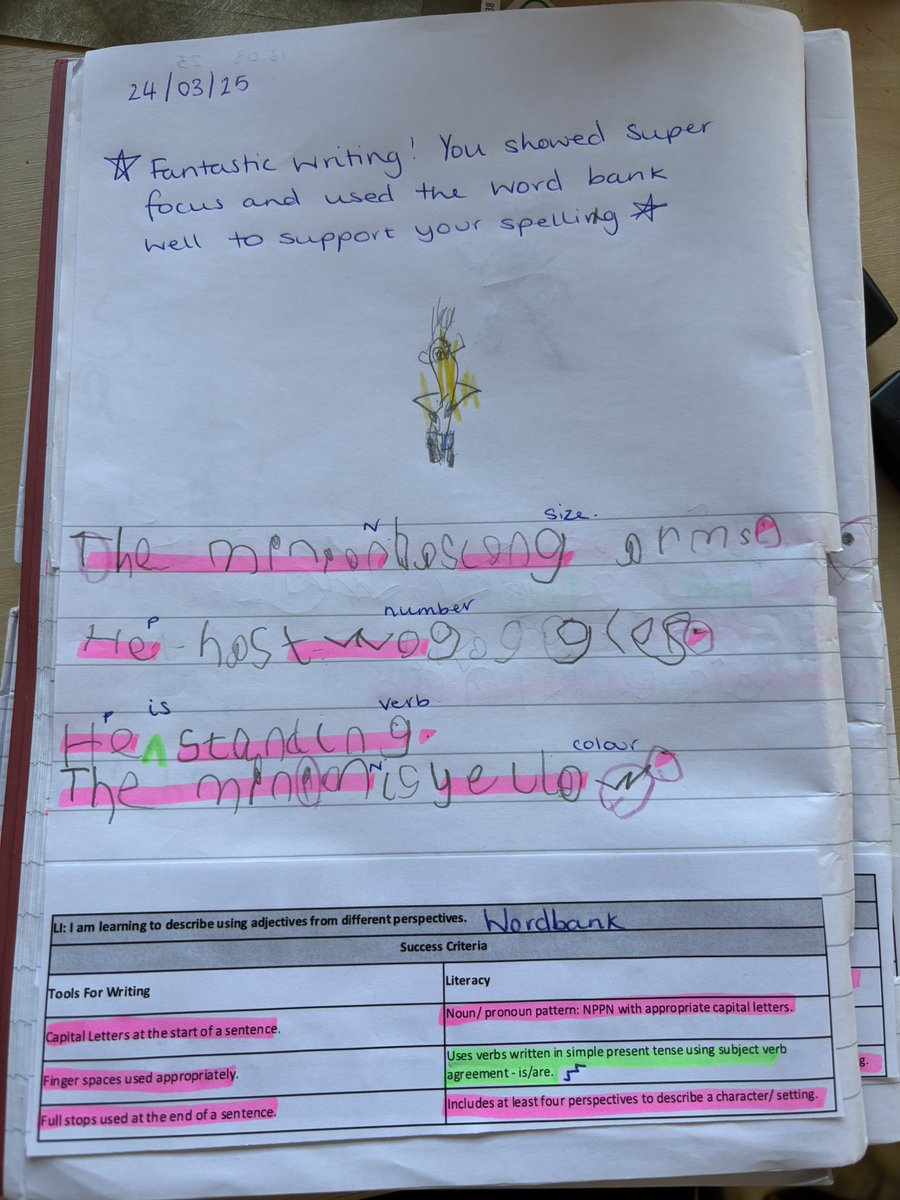 24/03/25
☆ Fantastic writing! You showed super
focus and used the word bank
well to support your spelling ☆
N size.
The minion has long arms.
P number
He has two
P is verb
He standing.
N colour
The minion is yellow.
LI: I am learning to describe using adjectives from different perspectives. Wordbank
Success Criteria
Tools For Writing
Literacy
Capital Letters at the start of a sentence.
Noun/ pronoun pattern: NPPN with appropriate capital letters.
Finger spaces used appropriately.
Uses verbs written in simple present tense using subject verb
agreement - is/are.
Full stops used at the end of a sentence.
Includes at least four perspectives to describe a character/ setting.
g.